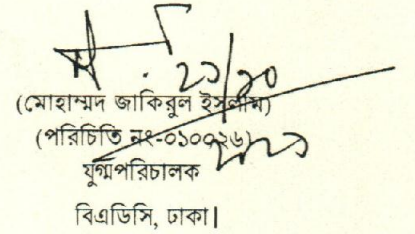 ২১/১০
(মোহাম্মদ জাকিরুল ইসলাম)
(পরিচিতি নং-০১০০২৬)
যুগ্মপরিচালক
বিএডিসি, ঢাকা।